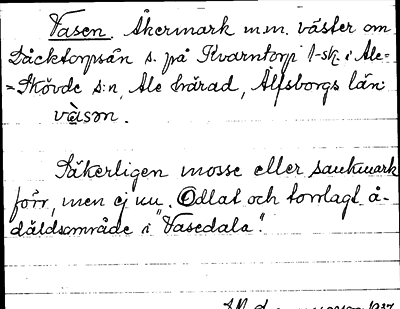 Vasen. Åkermark m.m. väster om
Dåcktorpsån s. på Kvarntorp 1-sk. i Ale-
=Skövde s:n, Ale härad, Älfsborgs län.
vàsən.
Säkerligen mosse eller sankmark
förr, men ej nu. Odlat och torrlagt å-
däldsområde i "Vasedala".